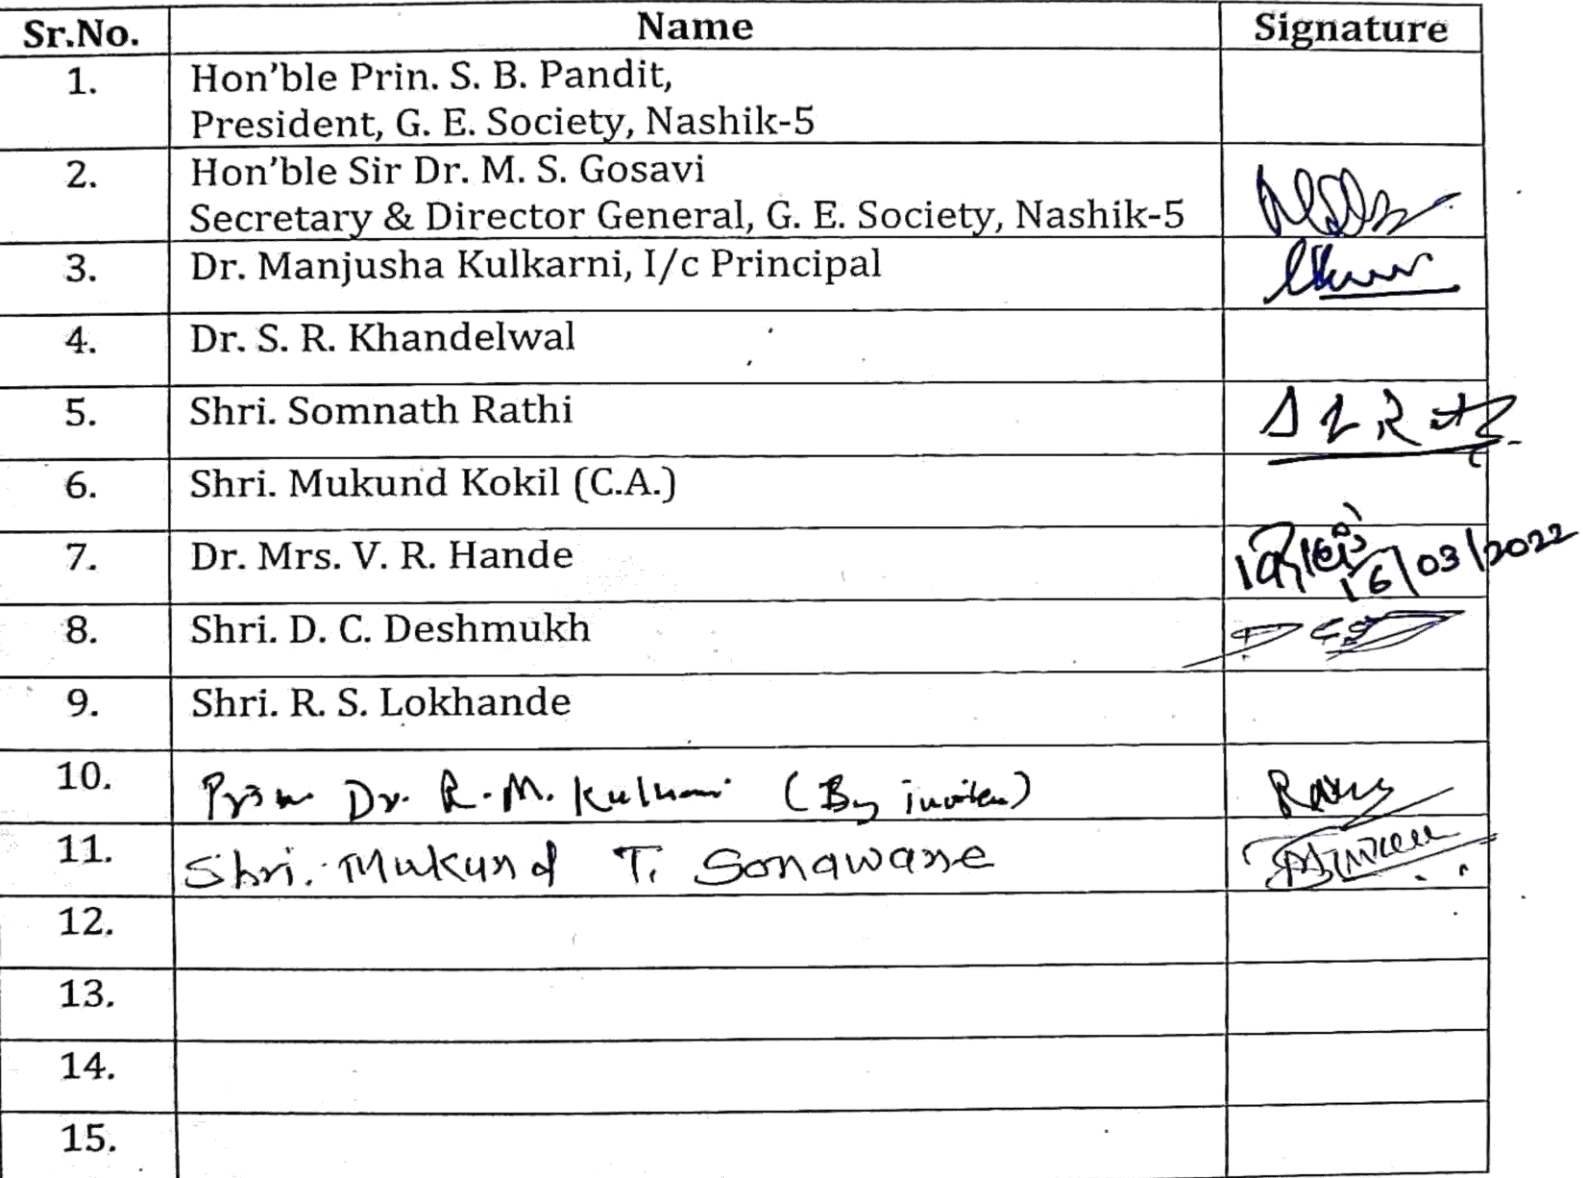 Sr.No. Name Signature
1. Hon'ble Prin. S. B. Pandit,
President, G. E. Society, Nashik-5
2. Hon'ble Sir Dr. M. S. Gosavi
Secretary & Director General, G. E. Society, Nashik-5
3. Dr. Manjusha Kulkarni, I/c Principal
4. Dr. S. R. Khandelwal
5. Shri. Somnath Rathi
6. Shri. Mukund Kokil (C.A.)
7. Dr. Mrs. V. R. Hande 16/03/2022
8. Shri. D. C. Deshmukh
9. Shri. R. S. Lokhande
10. Dr. R. M. Kulkarni (By
11. Shri. Mukund T. Sonawane
12.
13.
14.
15.